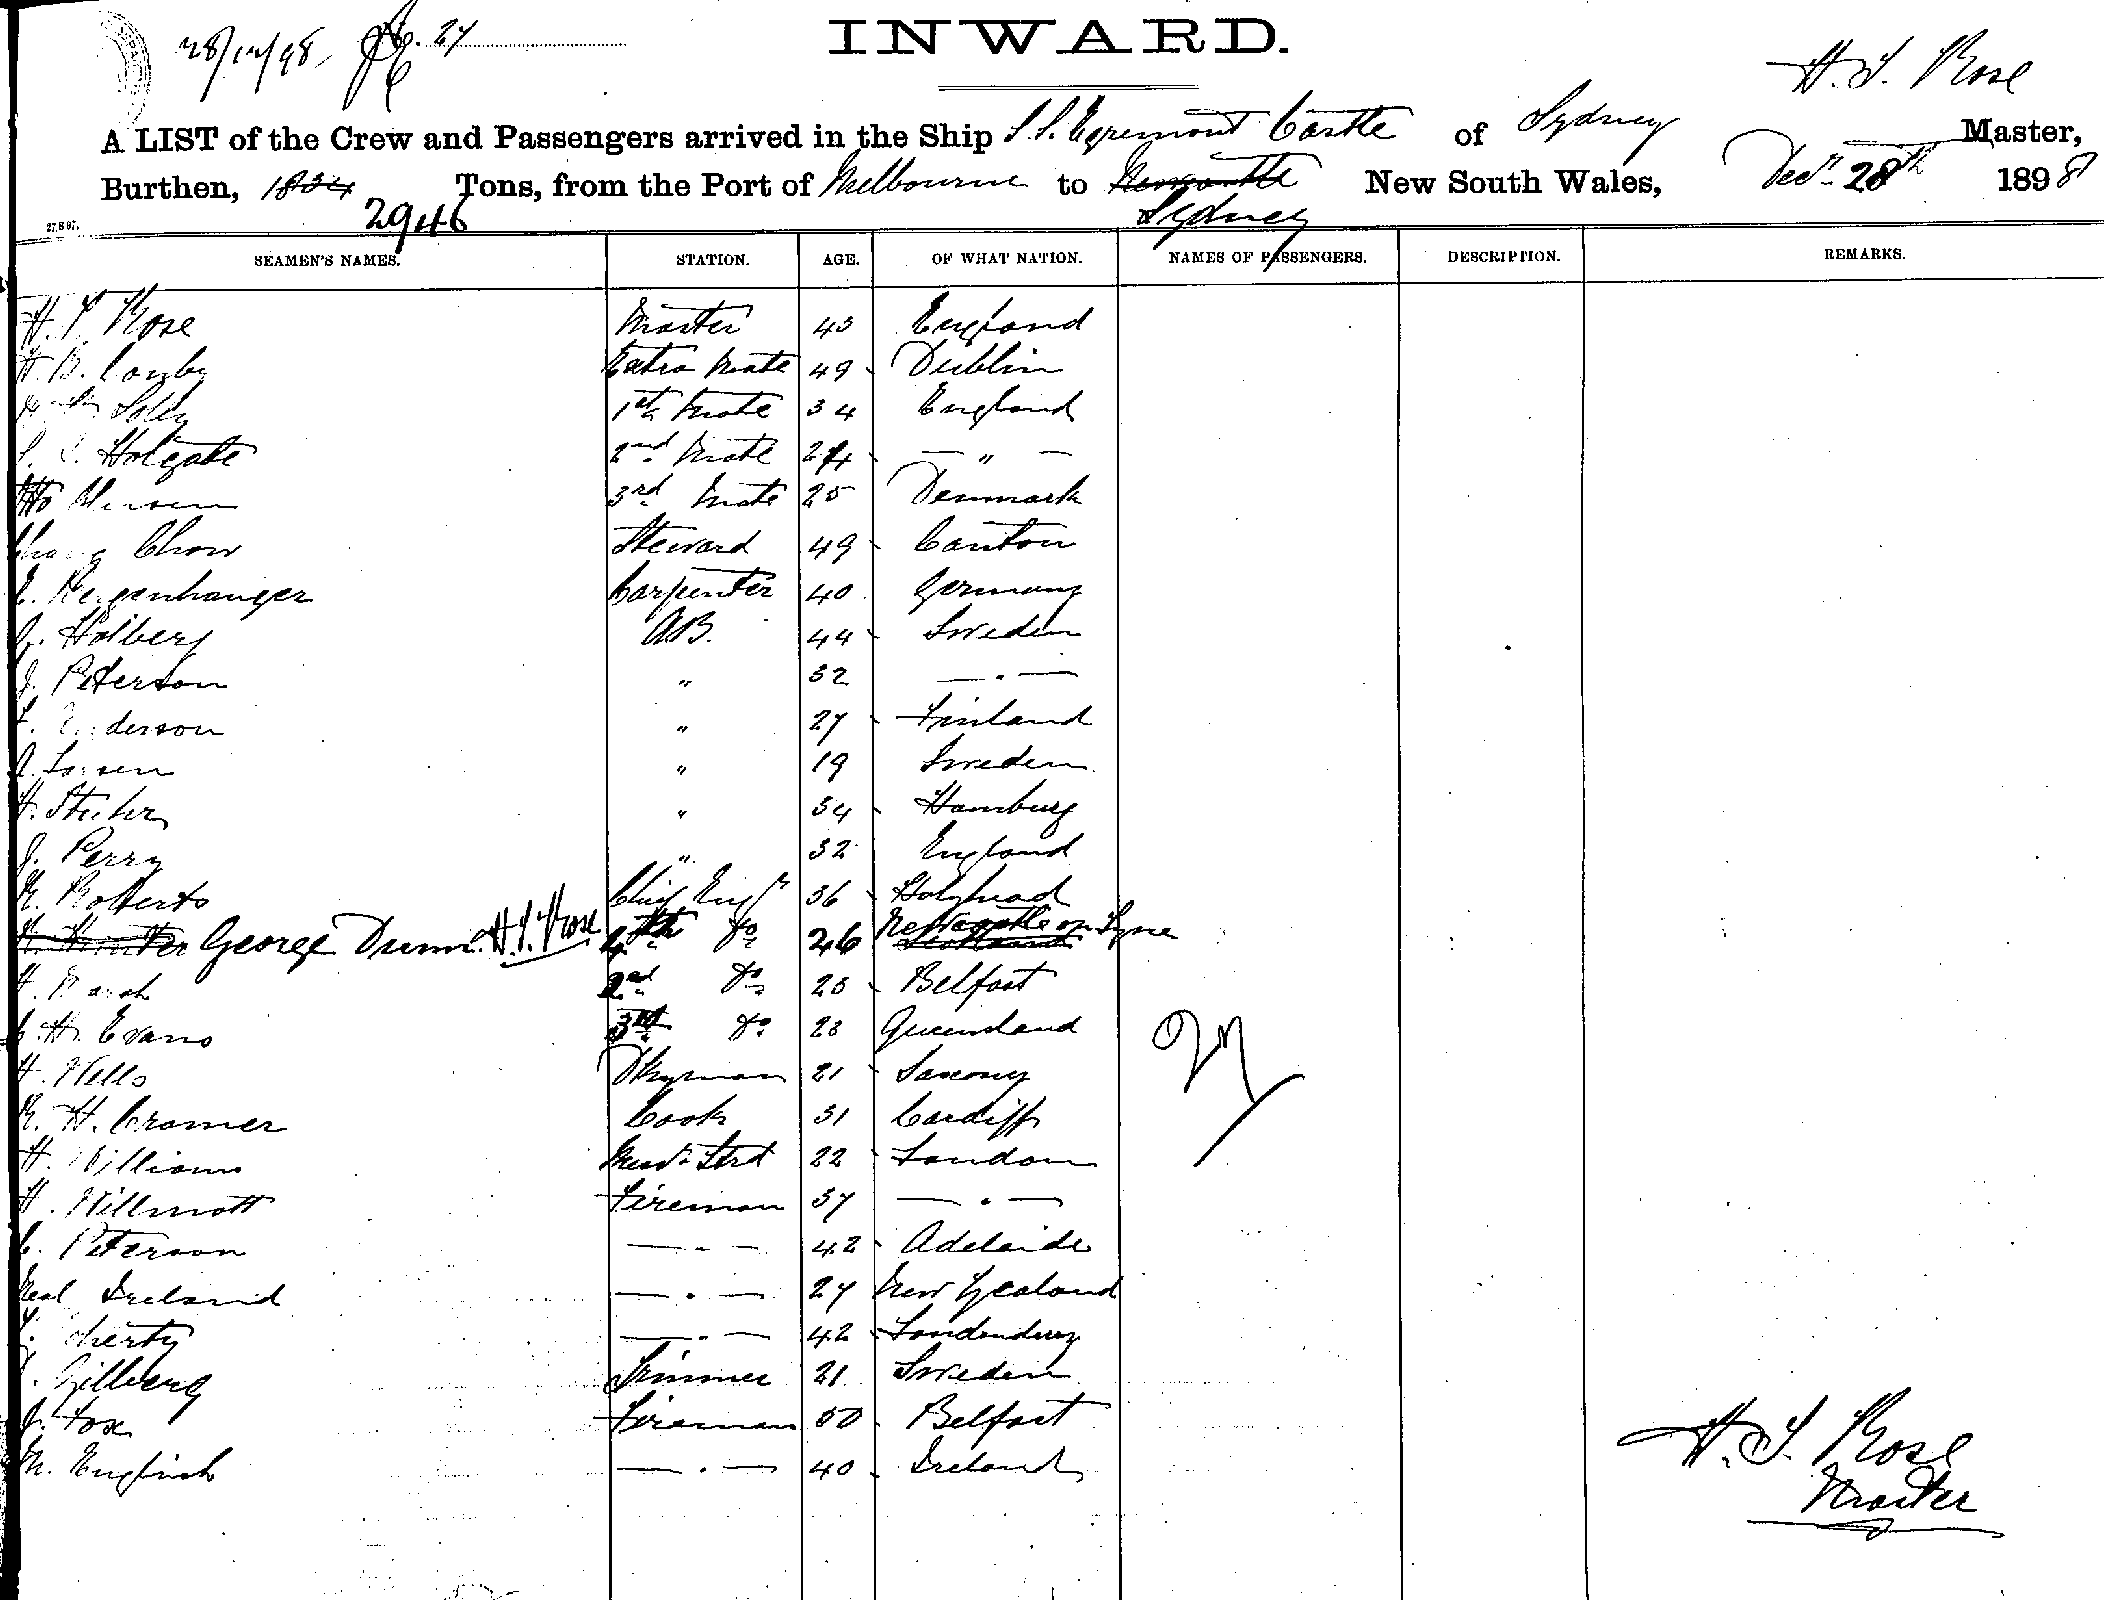 28/12/98 27
INWARD.
H. S. Rose
A LIST of the Crew and Passengers arrived in the Ship S.S. Egremont Castle of Sydney Master,
Burthen, 1834 Tons, from the Port of Melbourne to Newcastle New South Wales, Decr. 28th 1898
2946 Sydney
27.8.97.
SEAMEN'S NAMES. STATION. AGE. OF WHAT NATION. NAMES OF PASSENGERS. DESCRIPTION. REMARKS.
H. S. Rose Master 43 England
H. B. Extra Mate 49 Dublin
1st Mate 34 England
Holgate 2nd Mate 24 — " —
3rd Mate 25 Denmark
Chow Steward 49 Canton
Carpenter 40 Germany
J. Holberg AB. 44 Sweden
J. Peterson " 32 — " —
" 27 Finland
" 19 Sweden
H. " 34 Hamburg
J. Perry " 32 England
R. Roberts Chief Engr 36 Holyhead
H. Hunter George Dunn. H. S. Rose 4th do 26 Newcastle on Tyne Scotland
H. 2nd do 23 Belfast
C. H. Evans 3rd do 23 Queensland
H. Wells Dkyman 21 Saxony
R. H. Cramer Cook 31 Cardiff
H. Williams Strd 22 London
H. Willmott Fireman 37 — " —
C. Peterson — " — 42 Adelaide
Neal Ireland — " — 27 New Zealand
— " — 42 Londonderry
Gillberg Trimmer 21 Sweden
J. Fox Fireman 50 Belfast
M. English — " — 40 Ireland
27
H. S. Rose
Master